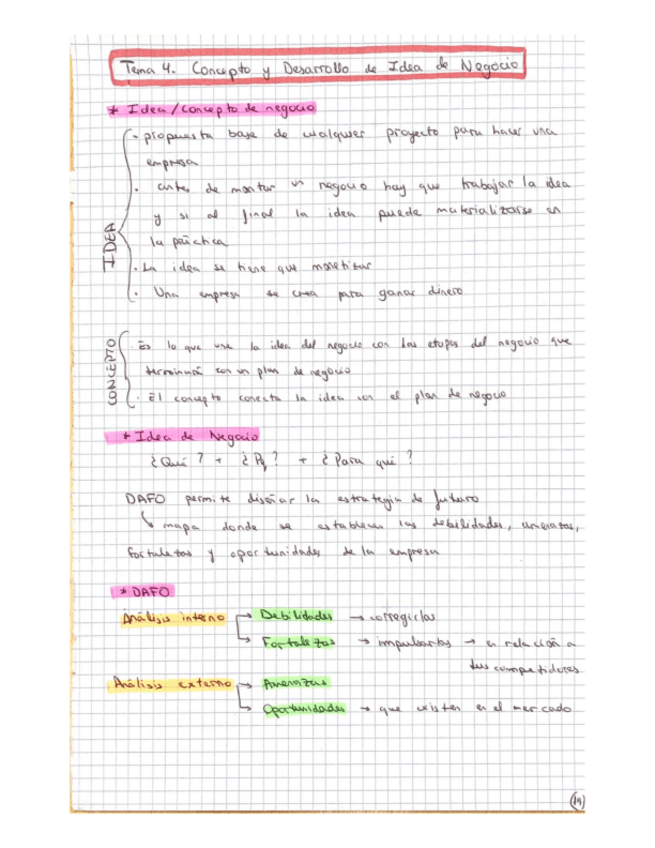 Tema 4. Concepto y Desarrollo de Idea de Negocio
* Idea / Concepto de negocio
IDEA
- propuesta base de cualquier proyecto para hacer una
empresa
. antes de montar un negocio hay que trabajar la idea
y si al final la idea puede materializarse en
la práctica
. La idea se tiene que monetizar
. Una empresa se crea para ganar dinero
CONCEPTO
. Es lo que une la idea del negocio con las etapas del negocio que
terminará con un plan de negocio
. El concepto conecta la idea con el plan de negocio
* Idea de Negocio
¿Qué? + ¿Pq? + ¿Para qué?
DAFO permite diseñar la estrategia de futuro
↳ mapa donde se establecen las debilidades, amenazas,
fortalezas y oportunidades de la empresa
* DAFO
Análisis interno → Debilidades → corregirlas
↳ Fortalezas → impulsarlas → en relación a
tus competidores
Análisis externo → Amenazas
↳ Oportunidades → que existen en el mercado
(14)